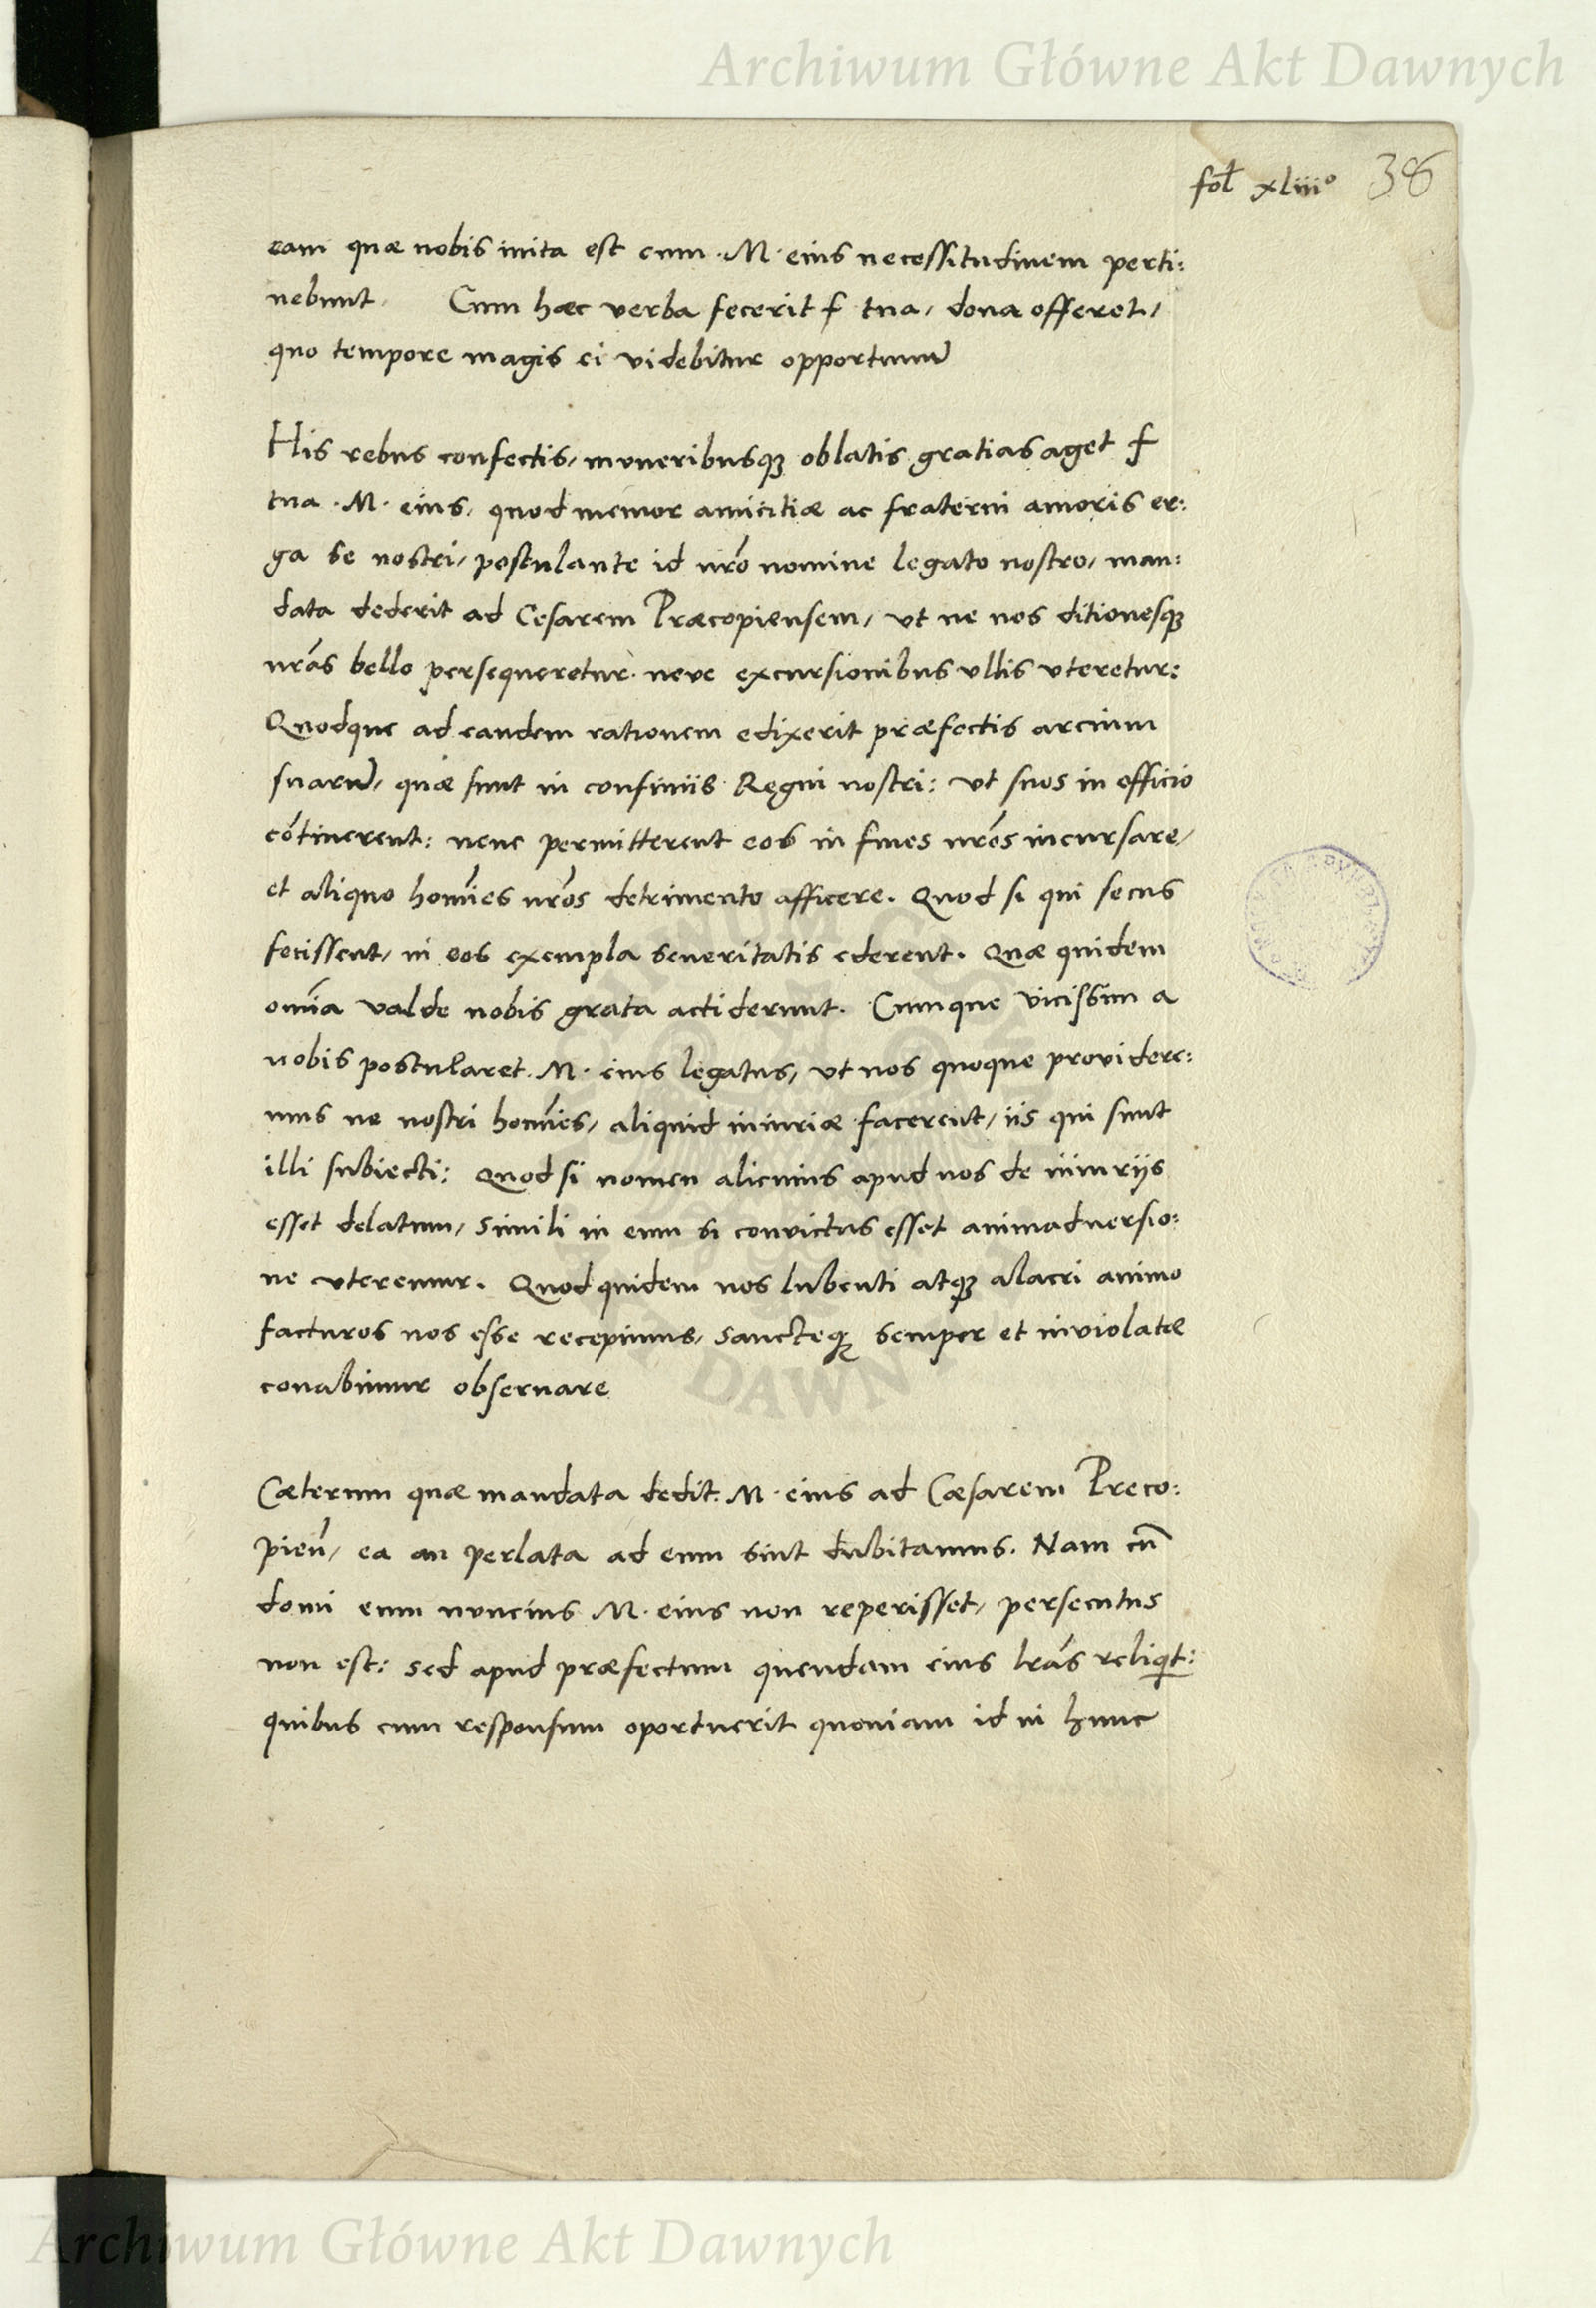 Archiwum Główne Akt Dawnych
fol xliii° 38
eam quæ nobis inita est cum .M. eius necessitudinem perti:
nebunt. Cum hæc verba fecerit f tua, dona offeret,
quo tempore magis ei videbitur opportunũ
His rebus confectis, muneribusq; oblatis gratias aget f
tua .M. eius, quod memor amicitiæ ac fraterni amoris er:
ga se nostri, postulante id nr̃o nomine legato nostro, man:
data dederit ad Cesarem Præcopiensem, vt ne nos ditionesq;
nr̃as bello persequeretur. neve excursionibus ullis vteretur:
Quodque ad eandem rationem edixerit præfectis arcium
suarũ, quæ sunt in confiniis Regni nostri: vt suos in officio
cõtinerent: neue permitterent eos in fines nr̃os incursare,
et aliquo homĩes nr̃os detrimento afficere. Quod si qui secus
fecissent, in eos exempla seueritatis ederent. Quæ quidem
omĩa valde nobis grata actiderunt. Cumque vicissim a
nobis postularet .M. eius legatus, vt nos quoque providere:
mus ne nostri homĩes, aliquid iniuriæ facerent, iis qui sunt
illi subiecti: Quod si nomen alicuius apud nos de iniurijs
esset delatum, simili in eum si convictus esset animaduersio:
ne vteremur. Quod quidem nos lubenti atq; alacri animo
facturos nos esse recepimus, sancteq; semper et inviolatæ
conabimur obseruare
Cæterum quæ mandata dedit .M. eius ad Cæsarem Preco:
pieñ, ea an perlata ad eum sint dubitamus. Nam cũ
domi eum nuncius M. eius non reperisset, persecutus
non est: sed apud præfectum quendam eius lr̃as reliqit:
quibus cum responsum oportuerit quoniam id in hunc
DAWN
Archiwum Główne Akt Dawnych